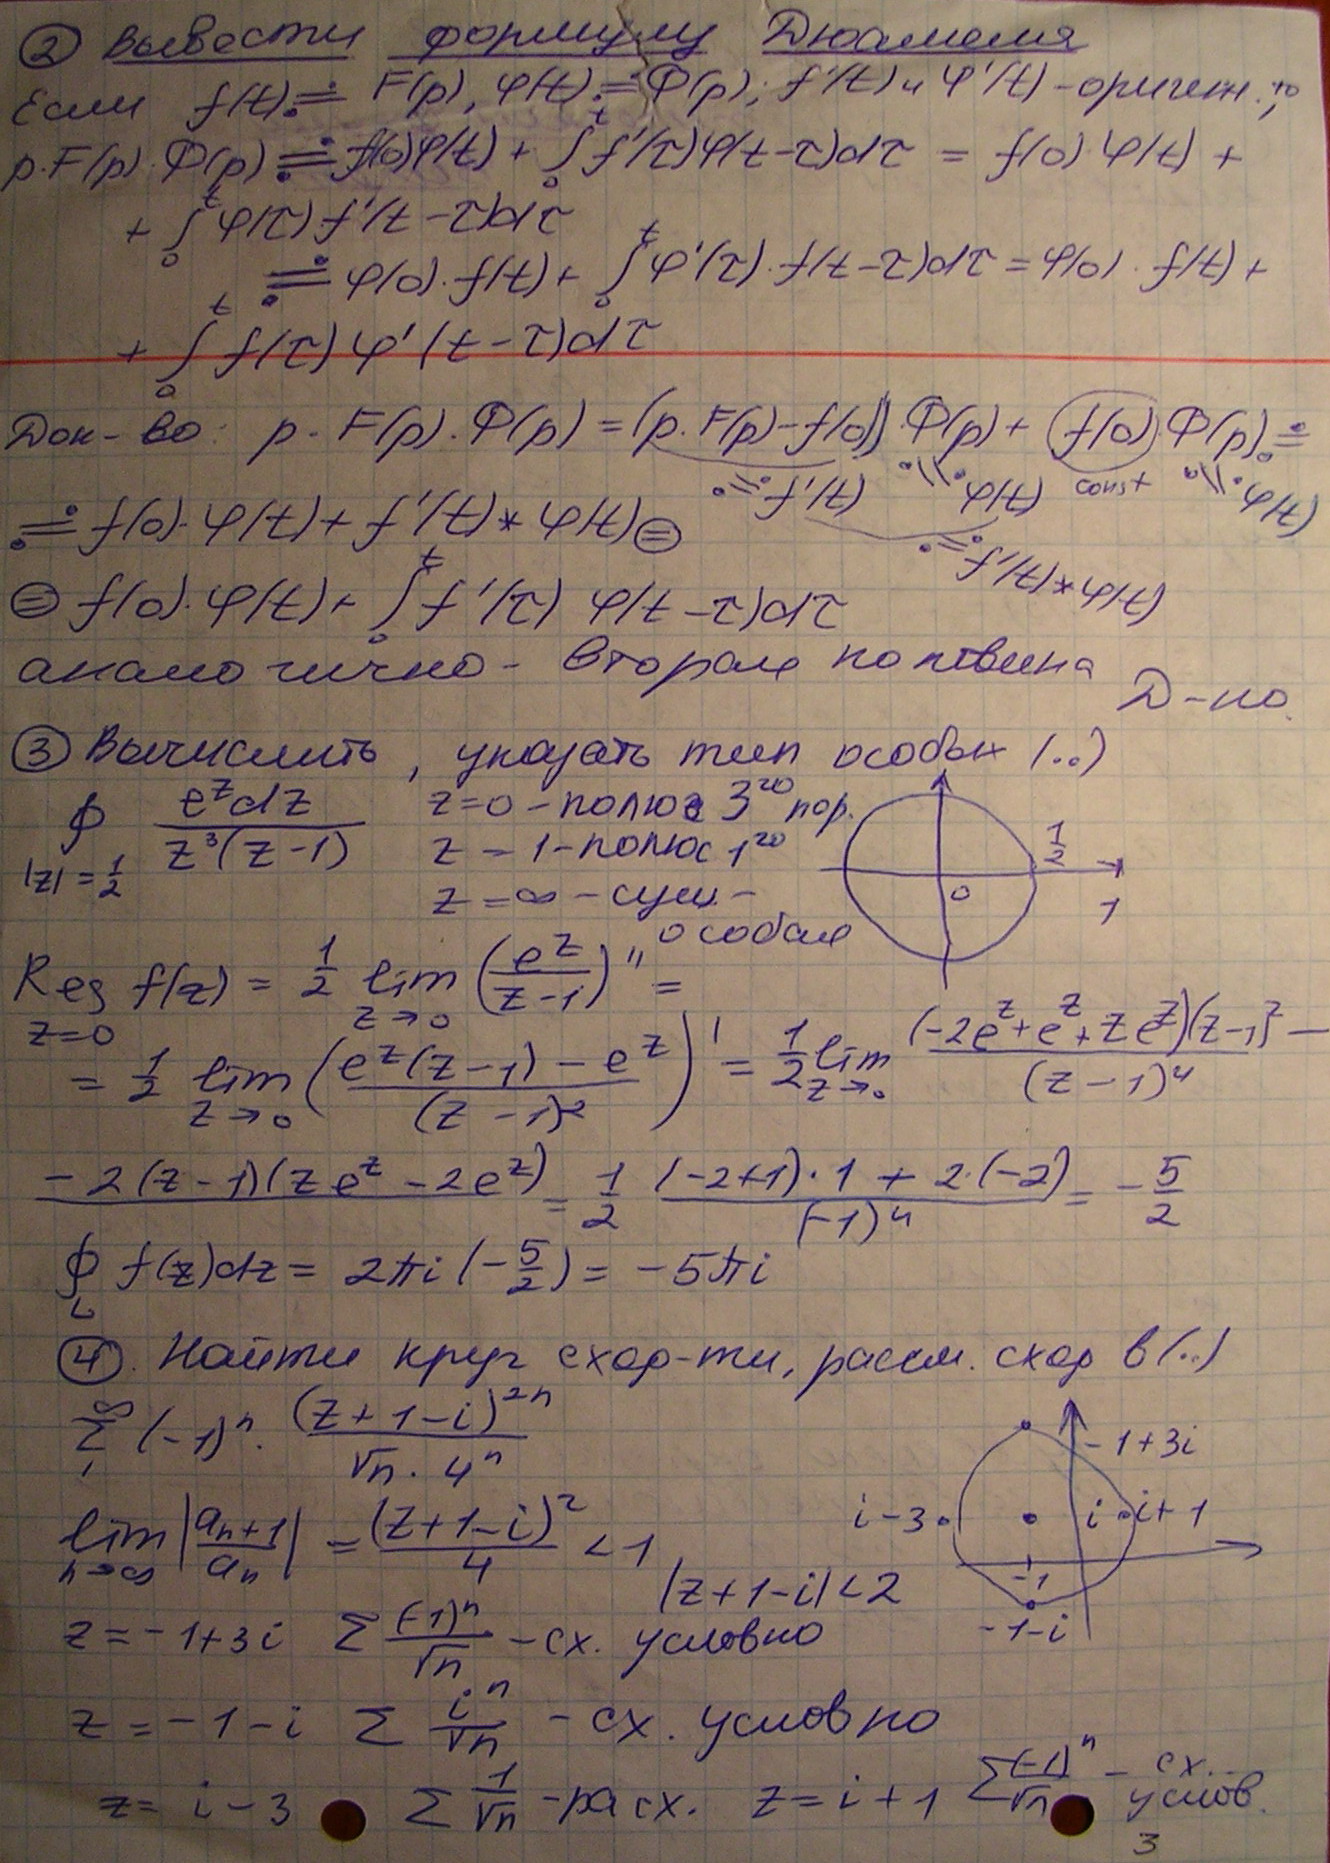 ② Вывести формулу Дюамеля
Если f(t) ≓ F(p), φ(t) ≓ Φ(p); f'(t) и φ'(t) - оригин., то
p·F(p)·Φ(p) ≓ f(0)φ(t) + ∫₀ᵗ f'(τ)φ(t-τ)dτ = f(0)·φ(t) +
+ ∫₀ᵗ φ(τ)·f'(t-τ)dτ
≓ φ(0)·f(t) + ∫₀ᵗ φ'(τ)·f(t-τ)dτ = φ(0)·f(t) +
+ ∫₀ᵗ f(τ)φ'(t-τ)dτ
Док-во: p·F(p)·Φ(p) = (p·F(p) - f(0))·Φ(p) + f(0)·Φ(p) ≓
≓ f'(t) ≓ φ(t) const ≓ φ(t)
≓ f(0)·φ(t) + f'(t)*φ(t) ⊜
≓ f'(t)*φ(t)
⊜ f(0)·φ(t) + ∫₀ᵗ f'(τ) φ(t-τ)dτ
аналогично - вторая половина
Д-но.
③ Вычислить, указать тип особых (..)
∮ e^z dz / z³(z-1) z=0 - полюс 3го пор.
|z|=1/2 z = 1 - полюс 1го
z = ∞ - сущ. - особая
1/2
0 1
Res f(z) = 1/2 lim (e^z/(z-1))'' =
z=0 z→0
= 1/2 lim ((e^z(z-1) - e^z)/(z-1)²)' = 1/2 lim (-2e^z + e^z + ze^z)(z-1)² - / (z-1)⁴
z→0 z→0
-2(z-1)(ze^z - 2e^z) = 1/2 ((-2+1)·1 + 2·(-2))/(-1)⁴ = -5/2
∮ f(z)dz = 2πi(-5/2) = -5πi
L
④. Найти круг сход-ти, рассм. сход в (..)
∑₁^∞ (-1)ⁿ · (z+1-i)²ⁿ / √n · 4ⁿ
-1+3i
lim |aₙ₊₁/aₙ| = (z+1-i)²/4 < 1
n→∞
i-3 i i+1
-1
|z+1-i| < 2
-1-i
z = -1+3i ∑ (-1)ⁿ/√n - сх. условно
z = -1-i ∑ iⁿ/√n - сх. условно
z = i-3 ∑ 1/√n - расх. z = i+1 ∑ (-1)ⁿ/√n - сх. услов.
3